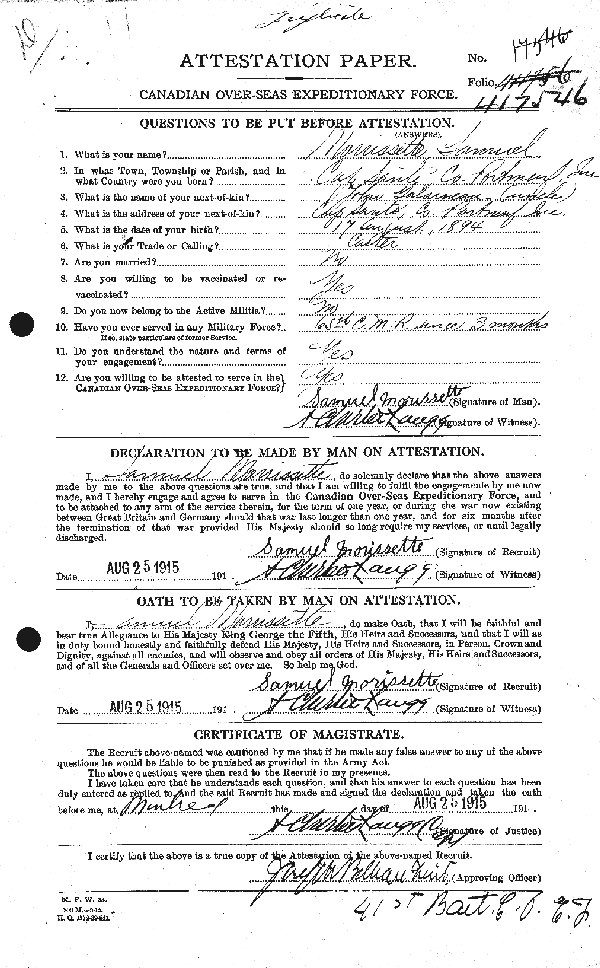 Triplicate
ATTESTATION PAPER.
No.
Folio.
417546
CANADIAN OVER-SEAS EXPEDITIONARY FORCE.
QUESTIONS TO BE PUT BEFORE ATTESTATION.
(ANSWERS)
1. What is your name? Morrissette Samuel
2. In what Town, Township or Parish, and in
what Country were you born? Cap Santé, Co Portneuf, Que
3. What is the name of your next-of-kin?
4. What is the address of your next-of-kin? Cap Santé, Co Portneuf Que
5. What is the date of your birth? 17 August, 1894
6. What is your Trade or Calling?
7. Are you married? No
8. Are you willing to be vaccinated or re-
vaccinated? Yes
9. Do you now belong to the Active Militia? No
10. Have you ever served in any Military Force? C. M. R 3 months
If so, state particulars of former Service.
11. Do you understand the nature and terms of
your engagement? Yes
12. Are you willing to be attested to serve in the
CANADIAN OVER-SEAS EXPEDITIONARY FORCE? Yes
Samuel Morissette (Signature of Man).
(Signature of Witness).
DECLARATION TO BE MADE BY MAN ON ATTESTATION.
I, Samuel Morrissette, do solemnly declare that the above answers
made by me to the above questions are true, and that I am willing to fulfil the engagements by me now
made, and I hereby engage and agree to serve in the Canadian Over-Seas Expeditionary Force, and
to be attached to any arm of the service therein, for the term of one year, or during the war now existing
between Great Britain and Germany should that war last longer than one year, and for six months after
the termination of that war provided His Majesty should so long require my services, or until legally
discharged.
Samuel Morissette (Signature of Recruit)
Date AUG 25 1915 191 (Signature of Witness)
OATH TO BE TAKEN BY MAN ON ATTESTATION.
I, Samuel Morrissette, do make Oath, that I will be faithful and
bear true Allegiance to His Majesty King George the Fifth, His Heirs and Successors, and that I will as
in duty bound honestly and faithfully defend His Majesty, His Heirs and Successors, in Person, Crown and
Dignity, against all enemies, and will observe and obey all orders of His Majesty, His Heirs and Successors,
and of all the Generals and Officers set over me. So help me God.
Samuel Morissette (Signature of Recruit)
Date AUG 25 1915 191 (Signature of Witness)
CERTIFICATE OF MAGISTRATE.
The Recruit above-named was cautioned by me that if he made any false answer to any of the above
questions he would be liable to be punished as provided in the Army Act.
The above questions were then read to the Recruit in my presence.
I have taken care that he understands each question, and that his answer to each question has been
duly entered as replied to, and the said Recruit has made and signed the declaration and taken the oath
before me, at Montreal this day of AUG 25 1915 191
(Signature of Justice)
I certify that the above is a true copy of the Attestation of the above-named Recruit.
(Approving Officer)
M. F. W. 23.
41st Batt. C. E. F.